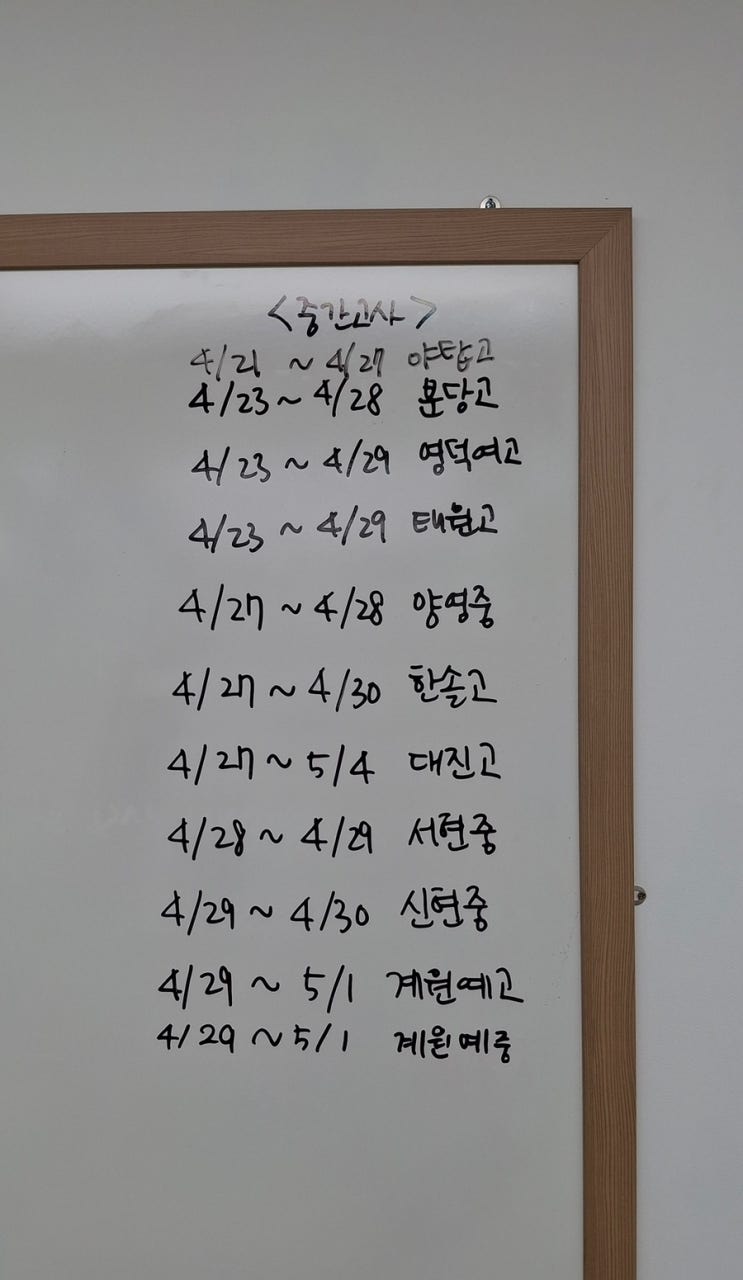 <중간고사>
4/21 ~ 4/27 야탑고
4/23 ~ 4/28 분당고
4/23 ~ 4/29 영덕여고
4/23 ~ 4/29 태원고
4/27 ~ 4/28 양영중
4/27 ~ 4/30 한솔고
4/27 ~ 5/4 대진고
4/28 ~ 4/29 서현중
4/29 ~ 4/30 신현중
4/29 ~ 5/1 계원예고
4/29 ~ 5/1 계원예중